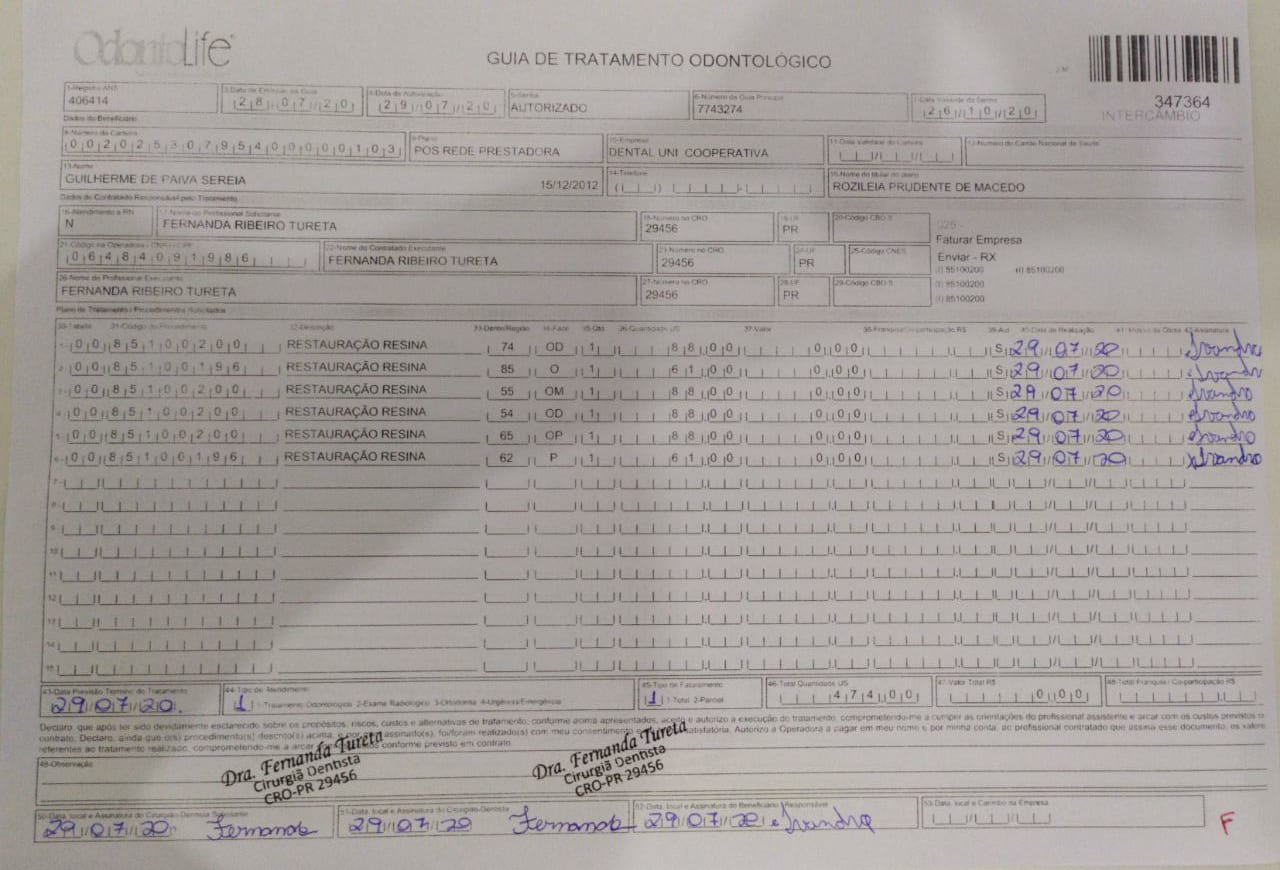 OdontoLife
GUIA DE TRATAMENTO ODONTOLÓGICO
2-Nº
347364
INTERCÂMBIO
1-Registro ANS 3-Data de Emissão da Guia 4-Data de Autorização 5-Senha 6-Número da Guia Principal 7-Data Validade da Senha
406414 28/07/20 29/07/20 AUTORIZADO 7743274 26/10/20
Dados do Beneficiário
8-Número da Carteira 9-Plano 10-Empresa 11-Data Validade da Carteira 12-Número do Cartão Nacional de Saúde
00202530795400000103 POS REDE PRESTADORA DENTAL UNI COOPERATIVA
13-Nome 14-Telefone 15-Nome do titular do plano
GUILHERME DE PAIVA SEREIA 15/12/2012 ROZILEIA PRUDENTE DE MACEDO
Dados do Contratado Responsável pelo Tratamento
16-Atendimento a RN 17-Nome do Profissional Solicitante 18-Número no CRO 19-UF 20-Código CBO S
N FERNANDA RIBEIRO TURETA 29456 PR
025 -
Faturar Empresa
Enviar - RX
(I) 55100200 (I) 85100200
(I) 85100200
(I) 85100200
21-Código na Operadora / CNPJ / CPF 22-Nome do Contratado Executante 23-Número no CRO 24-UF 25-Código CNES
06484091986 FERNANDA RIBEIRO TURETA 29456 PR
26-Nome do Profissional Executante 27-Número no CRO 28-UF 29-Código CBO S
FERNANDA RIBEIRO TURETA 29456 PR
Plano de Tratamento / Procedimentos Solicitados
30-Tabela 31-Código do Procedimento 32-Descrição 33-Dente/Região 34-Face 35-Qtd 36-Quantidade US 37-Valor 38-Franquia/Co-participação R$ 39-Aut 40-Data de Realização 41-Motivo da Glosa 42-Assinatura
1- 00 85100200 RESTAURAÇÃO RESINA 74 OD 1 88,00 0,00 S 29/07/20 Evandro
2- 00 85100196 RESTAURAÇÃO RESINA 85 O 1 61,00 0,00 S 29/07/20 Evandro
3- 00 85100200 RESTAURAÇÃO RESINA 55 OM 1 88,00 0,00 S 29/07/20 Evandro
4- 00 85100200 RESTAURAÇÃO RESINA 54 OD 1 88,00 0,00 S 29/07/20 Evandro
5- 00 85100200 RESTAURAÇÃO RESINA 65 OP 1 88,00 0,00 S 29/07/20 Evandro
6- 00 85100196 RESTAURAÇÃO RESINA 62 P 1 61,00 0,00 S 29/07/20 Evandro
7-
8-
9-
10-
11-
12-
13-
14-
15-
43-Data Previsão Término do Tratamento 44-Tipo de Atendimento 45-Tipo de Faturamento 46-Total Quantidade US 47-Valor Total R$ 48-Total Franquia / Co-participação R$
29/07/20 1 1-Tratamento Odontológico 2-Exame Radiológico 3-Ortodontia 4-Urgência/Emergência 1 1-Total 2-Parcial 474,00 0,00
Declaro, que após ter sido devidamente esclarecido sobre os propósitos, riscos, custos e alternativas de tratamento, conforme acima apresentados, aceito e autorizo a execução do tratamento, comprometendo-me a cumprir as orientações do profissional assistente e arcar com os custos previstos
contrato. Declaro, ainda que o(s) procedimento(s) descrito(s) acima, e por mim assinado(s), foi/foram realizado(s) com meu consentimento e satisfatória. Autorizo a Operadora a pagar em meu nome e por minha conta, ao profissional contratado que assina esse documento, os valores
referentes ao tratamento realizado, comprometendo-me a arcar conforme previsto em contrato.
49-Observação
Dra. Fernanda Tureta
Cirurgiã Dentista
CRO-PR 29456
Dra. Fernanda Tureta
Cirurgiã Dentista
CRO-PR 29456
50-Data, local e Assinatura do Cirurgião-Dentista Solicitante 51-Data, local e Assinatura do Cirurgião-Dentista 52-Data, local e Assinatura do Beneficiário / Responsável 53-Data, local e Carimbo da Empresa
29/07/20 Fernanda 29/07/20 Fernanda 29/07/20 Evandro
F